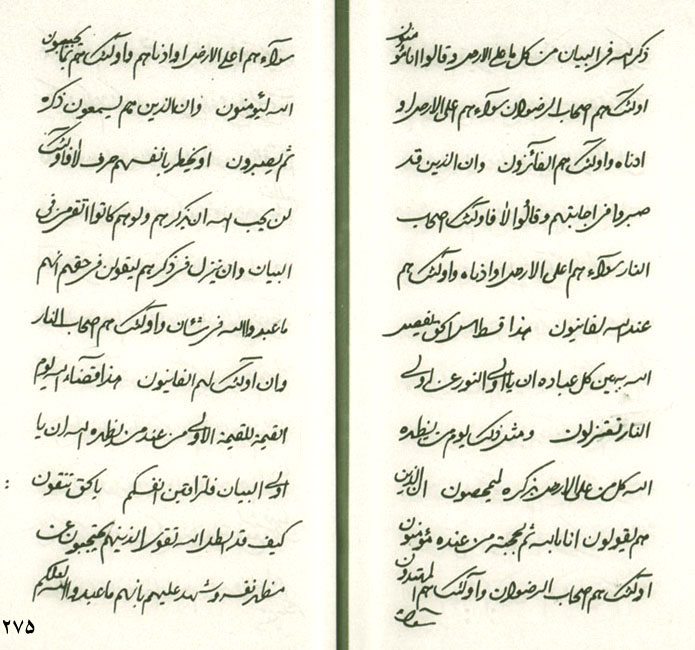 ذكر الله في البيان من كل ما على الارض وقالوا انا مؤمنون
اولئك هم اصحاب الرضوان سواء هم اعلى الارض او
ادناه واولئك هم الفائزون وان الذين قد
صبروا في اجابتهم وقالوا لا فاولئك اصحاب
النار سواء هم اعلى الارض او ادناه واولئك هم
عند الله لفانيون هذا قسطاس الحق ليفصل
الله به بين كل عباده ان يا اولي النور عن اولي
النار تعتزلون ومثل ذلك يوم من يظهره
الله كل من على الارض بذكره ليمحصون ان الذين
هم يقولون انا بالله ثم بحجته من عنده مؤمنون
اولئك هم اصحاب الرضوان واولئك هم المهتدون
سواء
سواء هم اعلى الارض او ادناهم واولئك هم بما يجيبون
الله ليؤمنون وان الذين هم يسمعون ذكره
ثم يصبرون او يخطر بانفسهم حرف لا فاولئك
لن يحب الله ان يذكرهم ولو هم كانوا اتقى من في
البيان وان ينزل في ذكرهم ليقولن في حقهم انهم
ما عبدوا الله في شئان واولئك هم اصحاب النار
وان اولئك لهم الفانيون هذا قضاء الله يوم
القيمة للقيمة الاولى من عند من يظهره الله ان يا
اولي البيان فلتراقبن انفسكم بالحق تتقون
كيف قد ابطل الله تقوى الذينهم يحتجبون عن
مظهر نفسه وشهد عليهم بانهم ما عبدوا الله لعلكم
٢٧٥